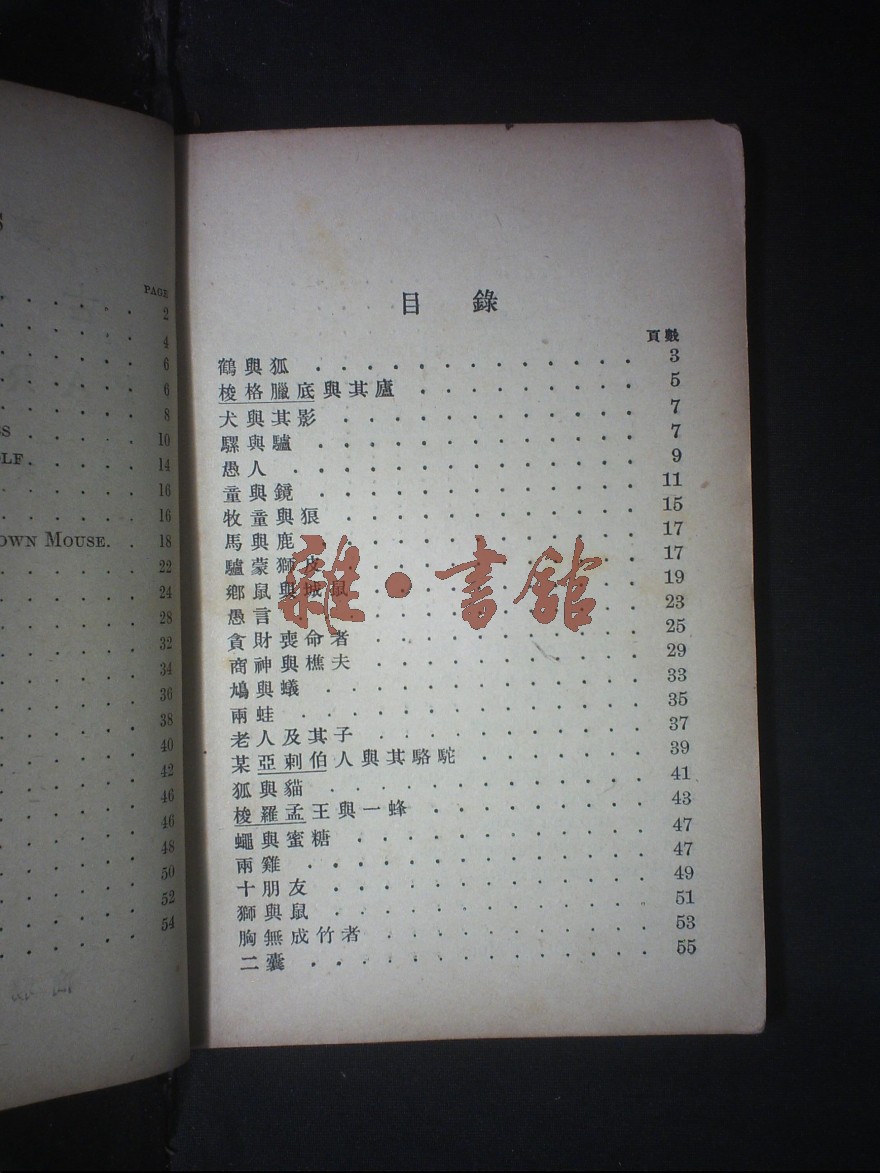 S
PAGE
2
4
6
6
8
SS . . . . . . 10
OLF . . . . . . 14
16
16
OWN MOUSE. . 18
22
24
28
32
34
36
38
40
42
46
46
48
50
52
54
目錄
頁數
鶴與狐 . . . . . . . . . . . . . 3
梭格臘底與其廬 . . . . . . . . . 5
犬與其影 . . . . . . . . . . . . 7
騾與驢 . . . . . . . . . . . . . 7
愚人 . . . . . . . . . . . . . . 9
童與鏡 . . . . . . . . . . . . . 11
牧童與狼 . . . . . . . . . . . . 15
馬與鹿 . . . . . . . . . . . . . 17
驢蒙獅皮 . . . . . . . . . . . . 17
鄉鼠與城鼠 . . . . . . . . . . . 19
愚言 . . . . . . . . . . . . . . 23
貪財喪命者 . . . . . . . . . . . 25
商神與樵夫 . . . . . . . . . . . 29
鳩與蟻 . . . . . . . . . . . . . 33
兩蛙 . . . . . . . . . . . . . . 35
老人及其子 . . . . . . . . . . . 37
某亞剌伯人與其駱駝 . . . . . . . 39
狐與貓 . . . . . . . . . . . . . 41
梭羅孟王與一蜂 . . . . . . . . . 43
蠅與蜜糖 . . . . . . . . . . . . 47
兩雞 . . . . . . . . . . . . . . 47
十朋友 . . . . . . . . . . . . . 49
獅與鼠 . . . . . . . . . . . . . 51
胸無成竹者 . . . . . . . . . . . 53
二囊 . . . . . . . . . . . . . . 55
雜·書館